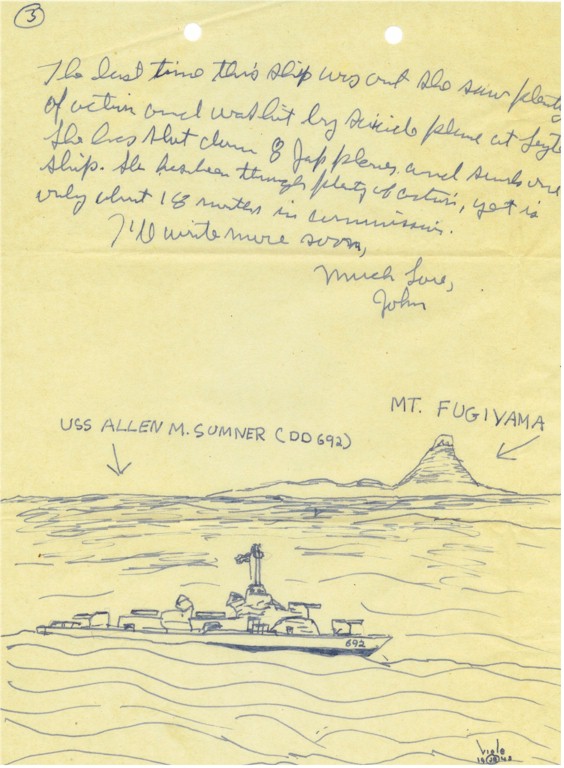 3
The last time this ship was out she saw plenty
of action and was hit by suicide plane at Leyte
She has shot down 8 Jap planes and sunk one
ship. She has been through plenty of action, yet is
only about 18 months in commission.
I'll write more soon,
Much Love,
John
MT. FUGIYAMA
USS ALLEN M. SUMNER (DD692)
692